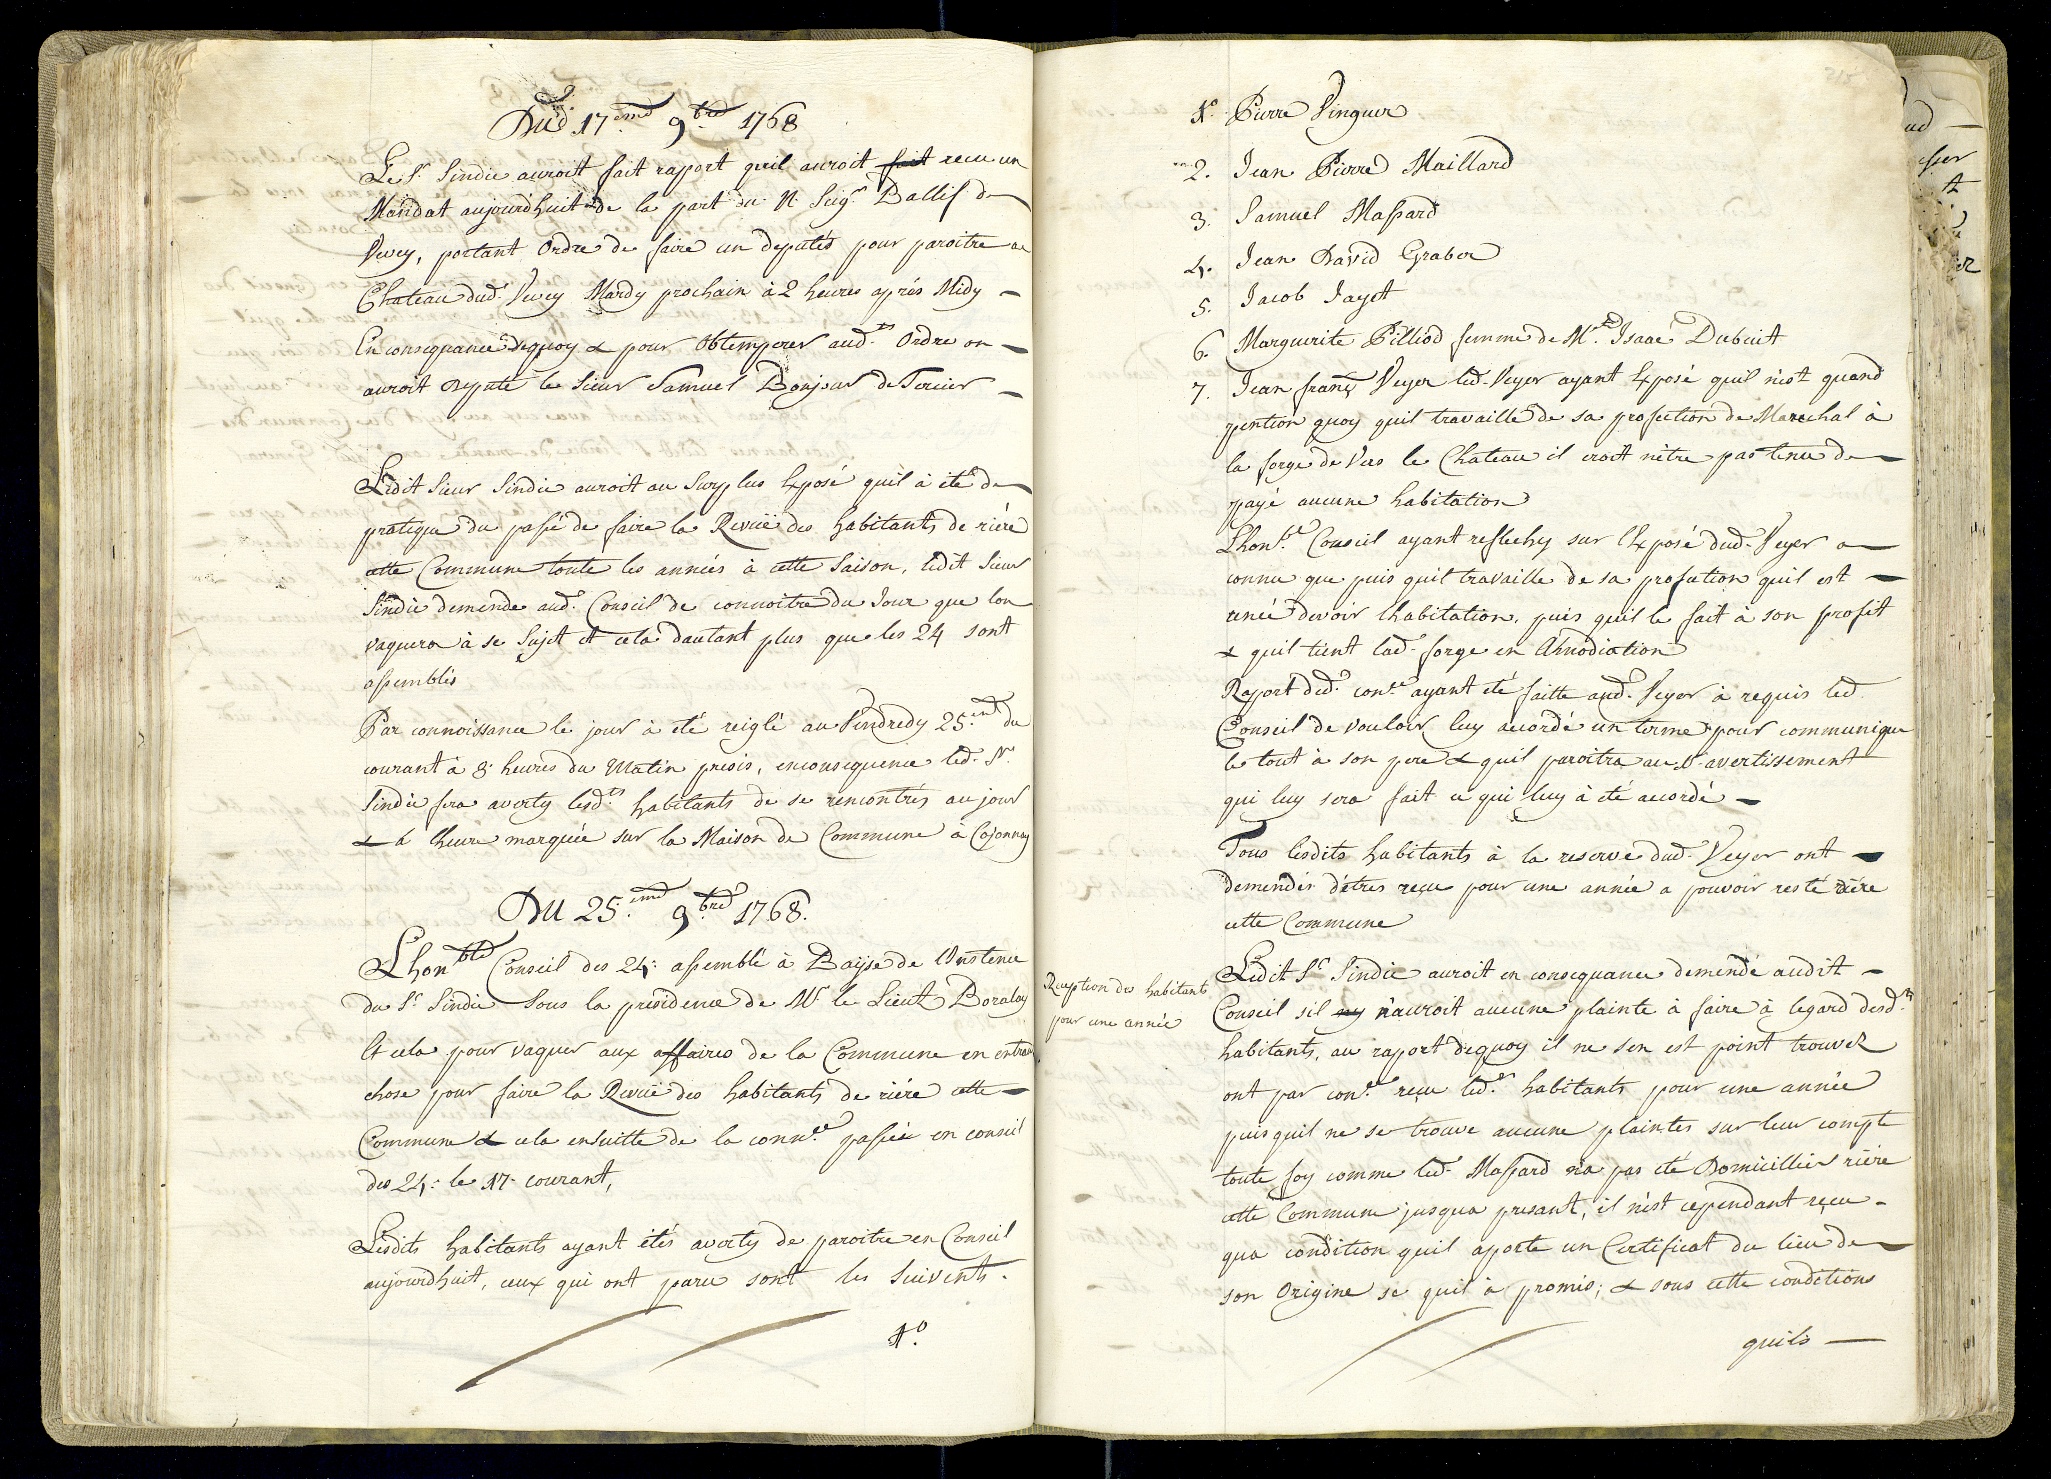 Dud. 17.eme 9.bre 1768
Le Sr. Sindic auroit fait raport quil auroit fait recu un
Mandat aujourdhuit de la part du N. Seigr. Ballif de
Vevey, portant Ordre de faire un deputés pour paroitre au
Chateau dud. Vevey Mardy prochain à 2 heures aprés Midy —
En consequance dequoy & pour Obtemperer aud.ts Ordre on —
auroit deputé le Sieur Samuel Bonjour de Tercier —
Ledit Sieur Sindic auroit au Surplus Exposé quil à eté de —
pratique du passé de faire la Revüe des habitants de riére
cette Commune toute les années à cette Saison, ledit Sieur
Sindic demende aud. Conseil de connoitre du Jour que lon
vaquera à se Sujet et cela dautant plus que les 24 sont
assemblés
Par connoissance le jour à eté reiglé au Vendredy 25.ent du
courant à 8 heures du Matin precis, enconsequence led. Sr.
Sindic fera averty lesd.ts habitants de se rencontrés au jour
& à lheure marquée sur la Maison de Commune à Cojonnay
DU 25.eme 9.bre 1768.
Lhon.ble Conseil des 24: assemblé à Baÿse de
du Sr. Sindic Sous la présidence de Mr. le Lieut. Boraley
Et cela pour vaquer aux affaires de la Commune en entre
chose pour faire la Revüe des habitants de riére cette —
Commune & cela ensuitte de la conn.ce passée en conseil
des 24: le 17. courant,
Lesdits habitants ayant étés averty de paroitre en Conseil
aujourdhuit, ceux qui ont paru sont les Suivents.
1.o
1.o Pierre Vinguer
2. Jean Pierre Maillard
3. Samuel Massard
4. Jean David Graber
5. Jacob Jayet
6. Marguerite Pilliod femme de Mr. Isaac Dubuit
7. Jean franç. Veyer led. Veyer ayant Exposé quil n'est quand
pention quoy quil travaille de sa profection de Marechal à
la forge de Vers le Chateau il croit n'être pas tenu de —
payé aucune habitation
Lhon.ble Conseil ayant reflechy sur l'Exposé dud. Veyer a —
connu que puis quil travaille de sa profection quil est —
cencé devoir lhabitation, puis quil le fait à son profit
& quil tient lad. forge en Amodiation
Raport ded.e con.ce ayant eté faitte aud. Veyer à requis led.
Conseil de vouloir luy accordé un terme pour communiquer
le tout à son pere & quil paroitra au 1.r avertissement
qui luy sera fait ce qui luy à eté accordé —
Tous lesdits habitants à la reserve dud. Veyer ont —
demendér dêtres reçu pour une année a pouvoir resté riére
cette Commune
Reception des habitants
pour une année
Ledit Sr. Sindic auroit en consequance demendé audit —
Conseil sil ny n'auroit aucune plainte à faire à legard desd.ts
habitants, au raport dequoy il ne sen est point trouvez
ont par con.ce reçu led.ts habitants pour une année
puisquil ne se trouve aucune plaintes sur leur compte
toute foy comme led. Massard n'a pas eté Domicillier riére
cette Commune jusqua presant, il n'est cependant reçu —
qua condition quil aporte un Certificat du lieu de —
son Origine se quil à promis; & sous cette conditions
quils —